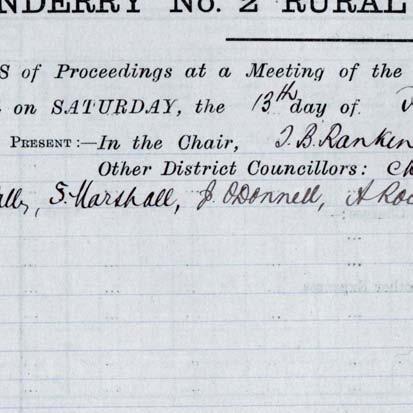 NDERRY No. 2 RURAL
S of Proceedings at a Meeting of the
on SATURDAY, the 13th day of
PRESENT:—In the Chair, J. B. Ranken
Other District Councillors:
S. Marshall, J. O'Donnell, A